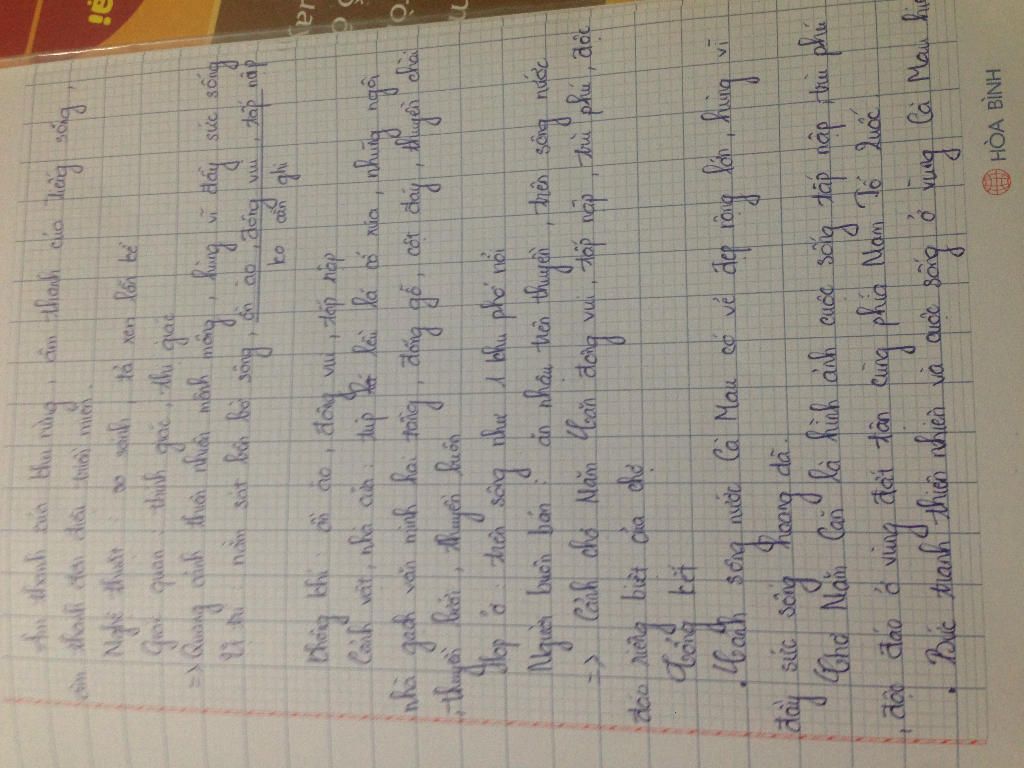 Âm thanh của thú rừng, âm thanh của tiếng sóng,
âm thanh đơn điệu triền miên.
Nghệ thuật: so sánh, tả xen lẫn kể
Giác quan: thính giác, thị giác
=> Quang cảnh thiên nhiên mênh mông, hùng vĩ đầy sức sống
Vị trí nằm sát bên bờ sông, ồn ào, đông vui, tấp nập
ko cần ghi
Không khí: ồn ào, đông vui, tấp nập
Cảnh vật, nhà cửa: túp lều lá cổ xưa, những ngôi
nhà gạch văn minh hai tầng, đống gỗ, cột đáy, thuyền chài
, thuyền lưới, thuyền buôn
Họp ở: trên sông như 1 khu phố nổi
Người buôn bán: ăn nhậu trên thuyền, trên sông nước
=> Cảnh chợ Năm Căn đông vui, tấp nập, trù phú, độc
đáo riêng biệt của chợ
Tổng kết
. Cảnh sông nước Cà Mau có vẻ đẹp rộng lớn, hùng vĩ
đầy sức sống hoang dã.
Chợ Năm Căn là hình ảnh cuộc sống tấp nập, trù phú
, độc đáo ở vùng đất tận cùng phía Nam Tổ Quốc
. Bức tranh thiên nhiên và cuộc sống ở vùng Cà Mau hiện
HÒA BÌNH